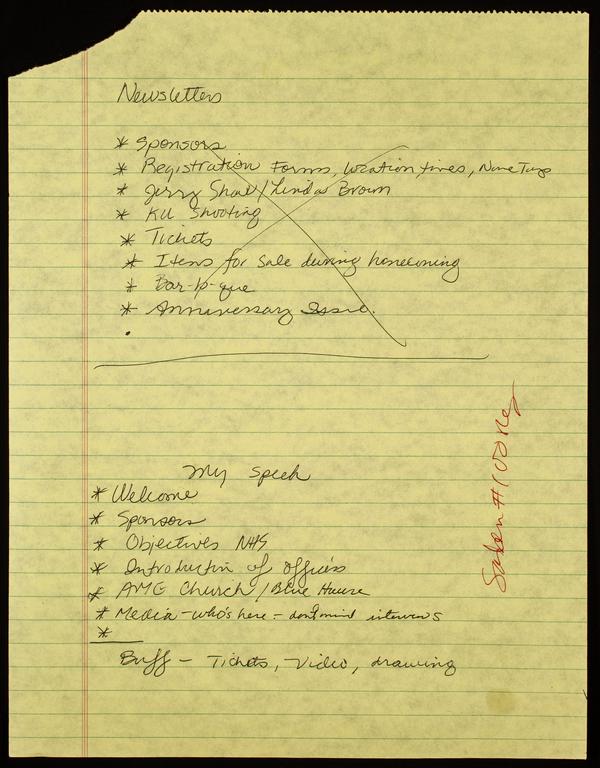 Newsletters
* Sponsors
* Registration Forms, location, times, Name Tags
* Jerry Shaw/Linda Brown
* KU Shooting
* Tickets
* Items for sale during homecoming
* Bar-b-que
* Anniversary Issue.
•
My Speeh
* Welcome
* Sponsors
* Objectives NHS
* Introduction of officers
* AME Church / Blue House
* Media - who's here - don't mind interviews
*
Buff - Tickets, Video, drawing